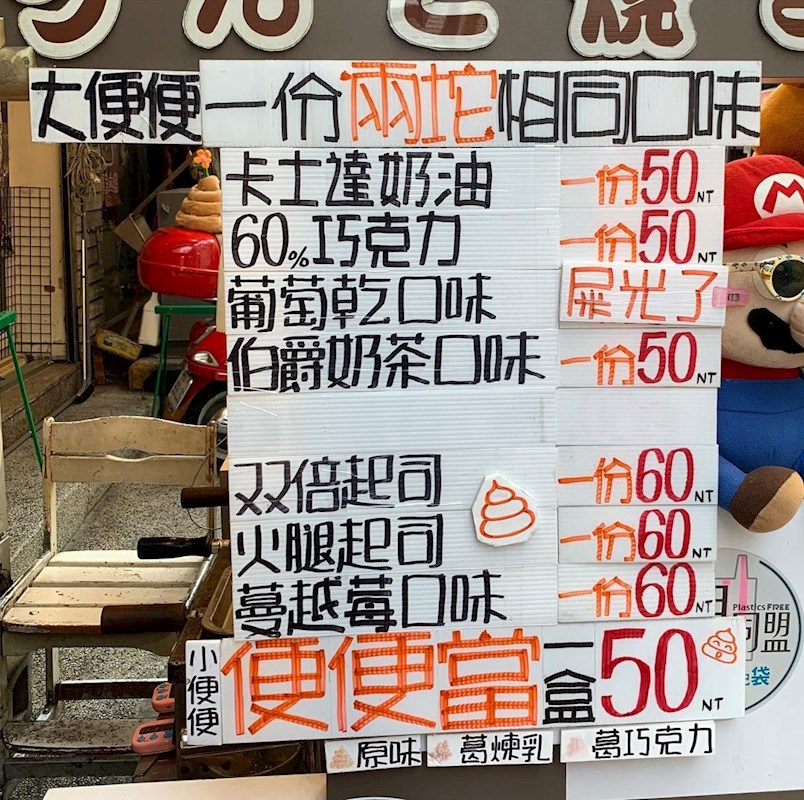 んこ焼
大便便一份兩坨相同口味
卡士達奶油 一份50NT
60%巧克力 一份50NT
葡萄乾口味 屎光了
伯爵奶茶口味 一份50NT
双倍起司 一份60NT
火腿起司 一份60NT
蔓越莓口味 一份60NT
小便便 便便當 一盒50NT
原味 葛煉乳 葛巧克力
M
Plastics FREE
同盟
袋